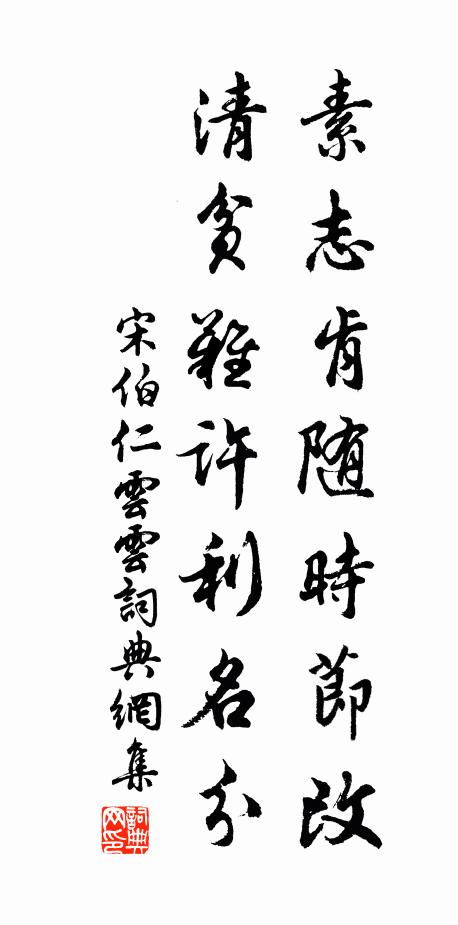 素志肯随時節改
清貧難許利名分
宋伯仁雲雲詞典網集
詞典网印